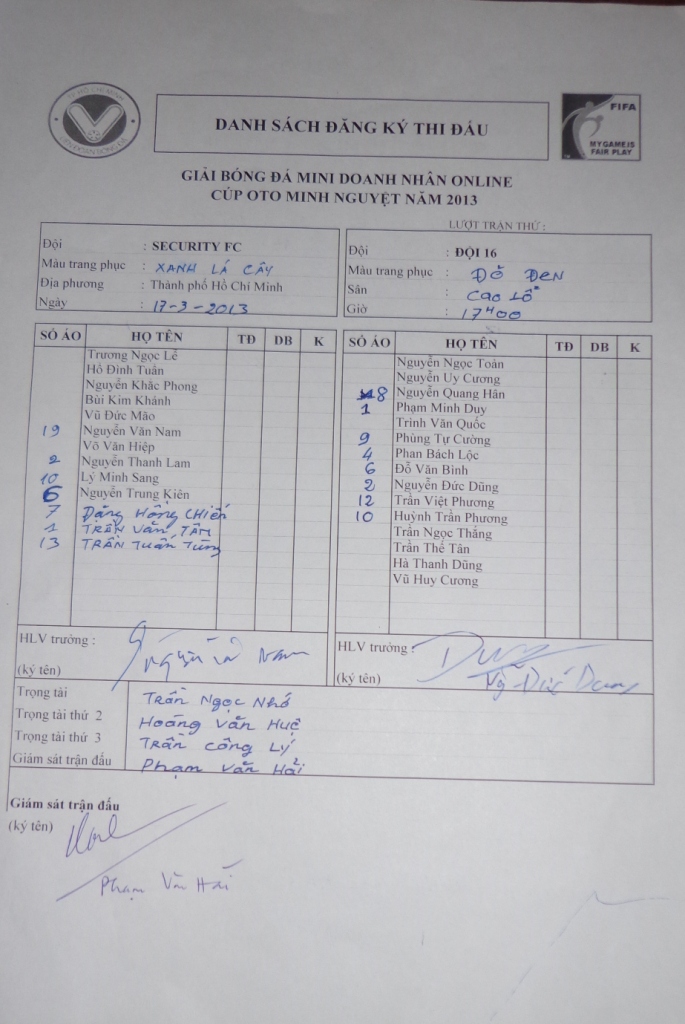 TP HỒ CHÍ MINH
LIÊN ĐOÀN BÓNG ĐÁ
DANH SÁCH ĐĂNG KÝ THI ĐẤU
FIFA
MY GAME IS
FAIR PLAY
GIẢI BÓNG ĐÁ MINI DOANH NHÂN ONLINE
CÚP OTO MINH NGUYỆT NĂM 2013
LƯỢT TRẬN THỨ :
Đội : SECURITY FC
Màu trang phục : XANH LÁ CÂY
Địa phương : Thành phố Hồ Chí Minh
Ngày : 17-3-2013
Đội : ĐỘI 16
Màu trang phục : ĐỎ ĐEN
Sân : CAO LỖ
Giờ : 17H00
SỐ ÁO HỌ TÊN TĐ DB K
Trương Ngọc Lê
Hồ Đình Tuấn
Nguyễn Khắc Phong
Bùi Kim Khánh
Vũ Đức Mão
19 Nguyễn Văn Nam
Võ Văn Hiệp
2 Nguyễn Thanh Lam
10 Lý Minh Sang
6 Nguyễn Trung Kiên
7 Đặng Hồng CHIẾN
1 TRẦN VĂN TÂM
13 TRẦN TUẤN Tùng
SỐ ÁO HỌ TÊN TĐ DB K
Nguyễn Ngọc Toàn
Nguyễn Uy Cương
8 Nguyễn Quang Hân
1 Phạm Minh Duy
Trinh Văn Quốc
9 Phùng Tự Cường
4 Phan Bách Lộc
6 Đỗ Văn Bình
2 Nguyễn Đức Dũng
12 Trần Việt Phương
10 Huỳnh Trần Phương
Trần Ngọc Thắng
Trần Thế Tân
Hà Thanh Dũng
Vũ Huy Cương
HLV trưởng :
(ký tên)
Nguyễn V Nam
HLV trưởng :
(ký tên)
Ng Đức Dung
Trọng tài TRẦN NGỌC NHỚ
Trọng tài thứ 2 HOÀNG VĂN HUỆ
Trọng tài thứ 3 TRẦN CÔNG LÝ
Giám sát trận đấu PHẠM VĂN HẢI
Giám sát trận đấu
(ký tên)
Phạm Văn Hải